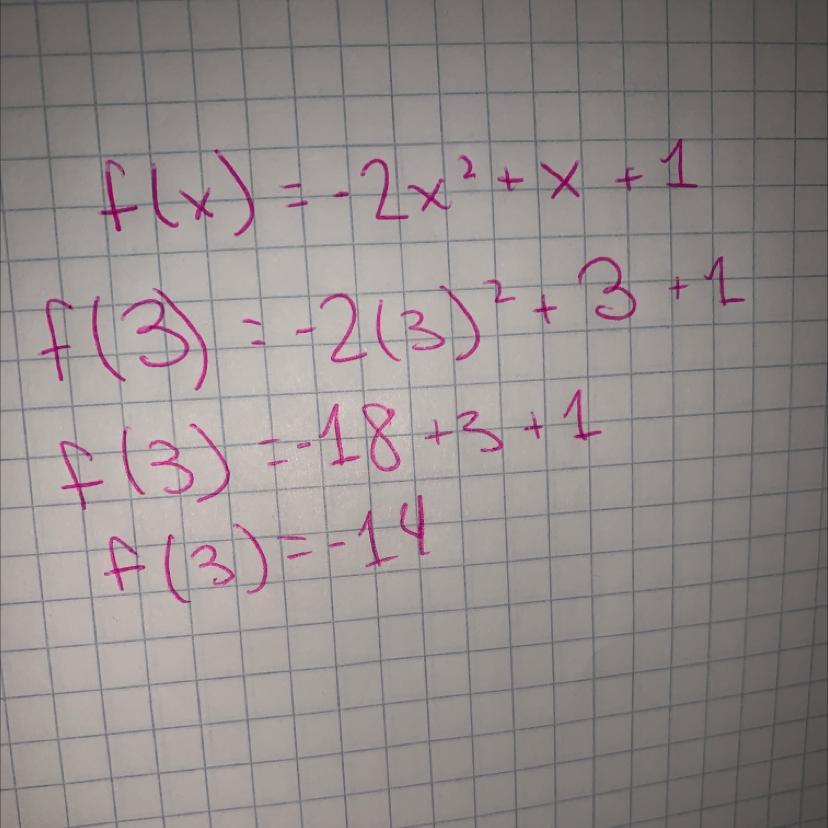 f(x) = -2x² + x + 1
f(3) = -2(3)² + 3 + 1
f(3) = -18 + 3 + 1
f(3) = -14